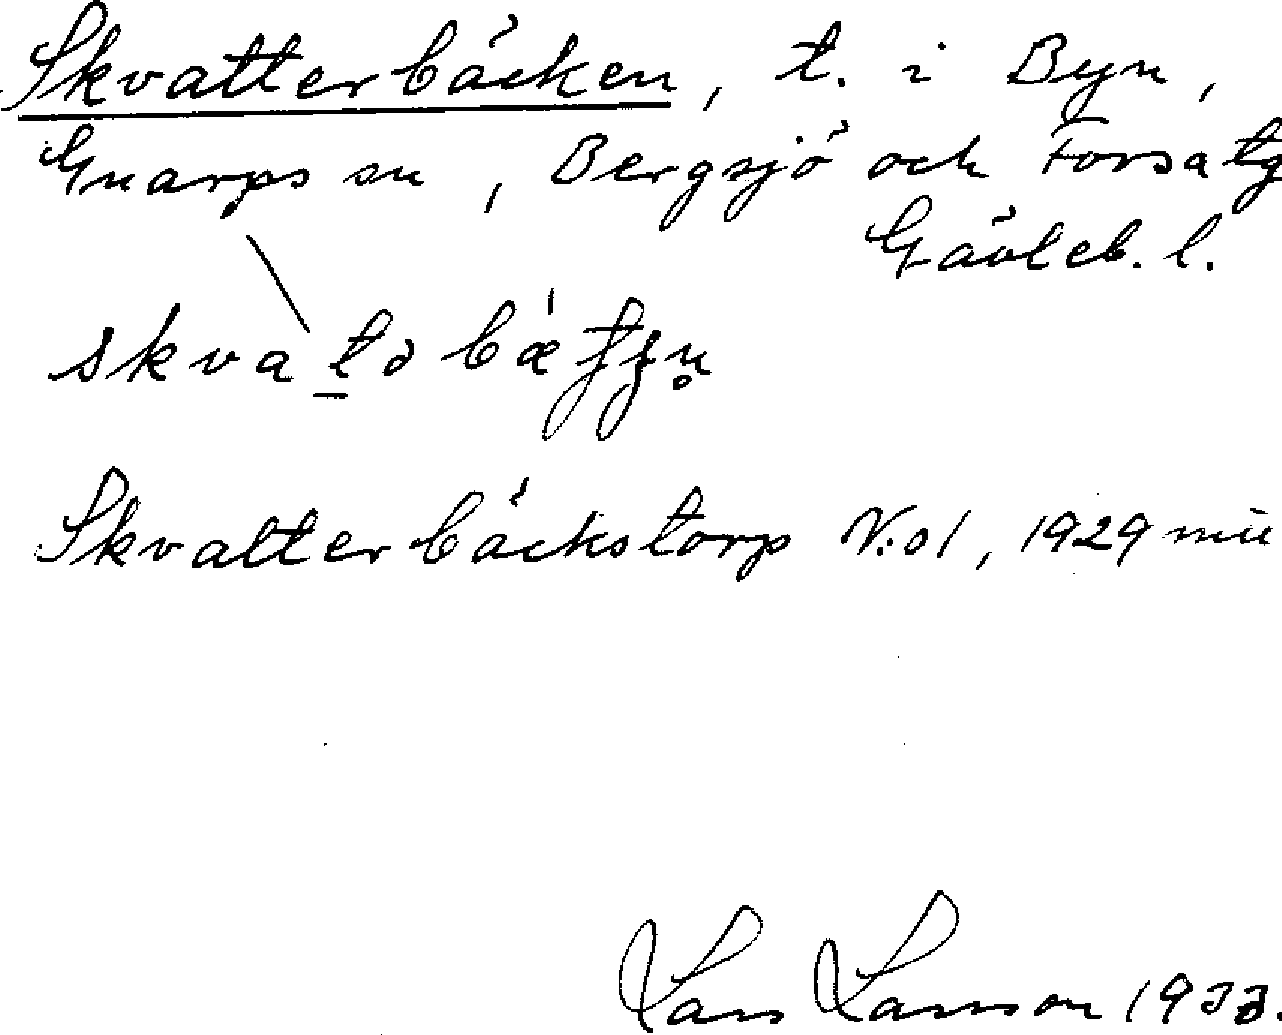 Skvatterbäcken, t. i Byn,
Gnarps sn, Bergsjö och Forsa tg
Gävleb. l.
Skvatterbäckstorp N:o1, 1929
Lars Larsson 1933.